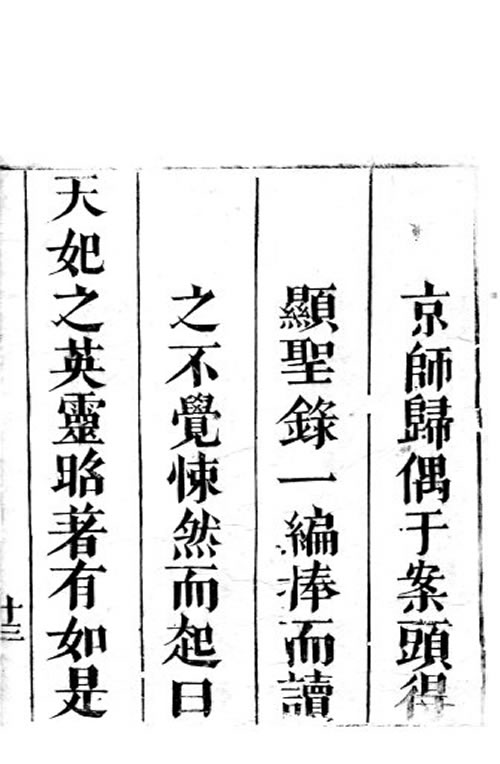 京師歸偶于案頭得
顯聖錄一編捧而讀
之不覺悚然而起曰
天妃之英靈昭著有如是
十三